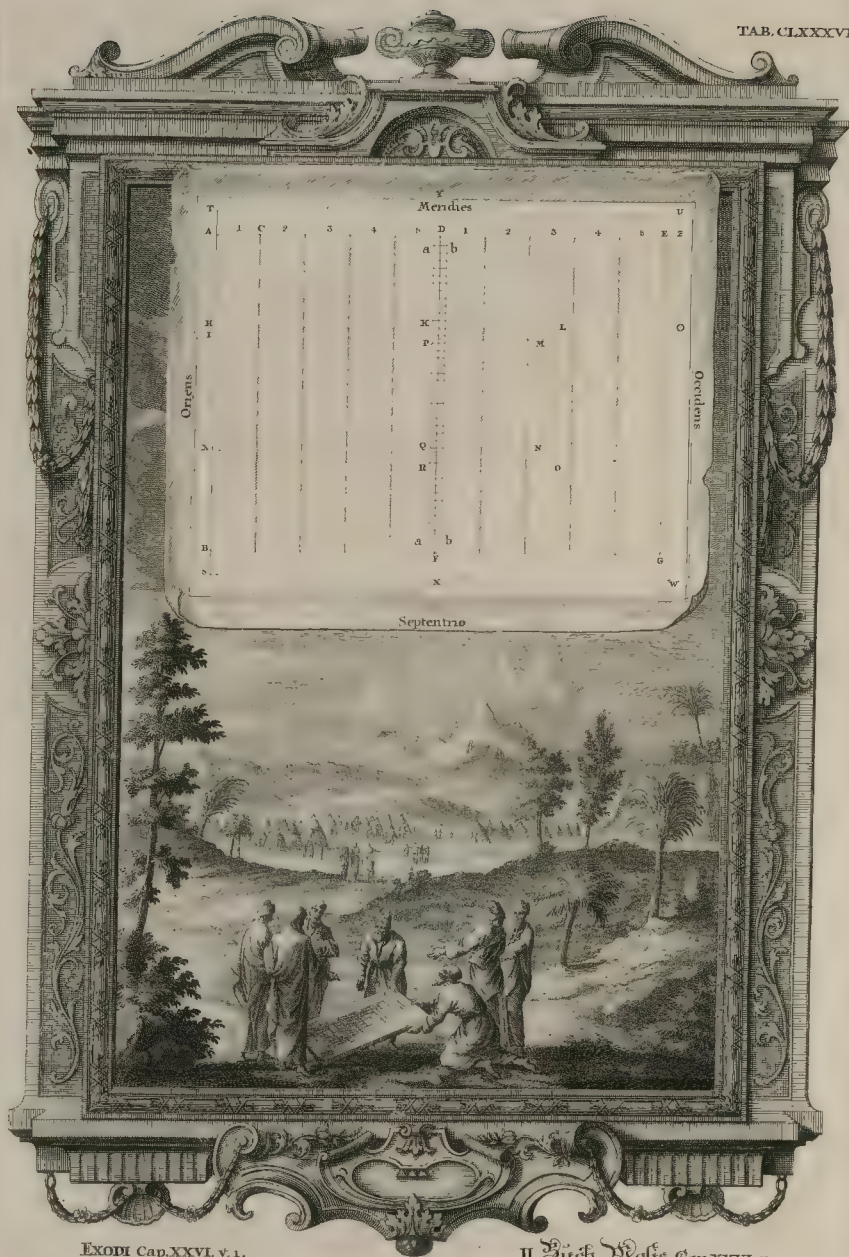 TAB. CLXXXVI
Y
T Meridies U
A 1 C 2 3 4 5 D 1 2 3 4 5 E Z
a b
H K L O
I P M
Oriens
Occidens
Q N
R O
B a b
F G
X W
Septentrio
EXODI Cap. XXVI. v. 1.
II. Buch Mosis Cap. XXVI.